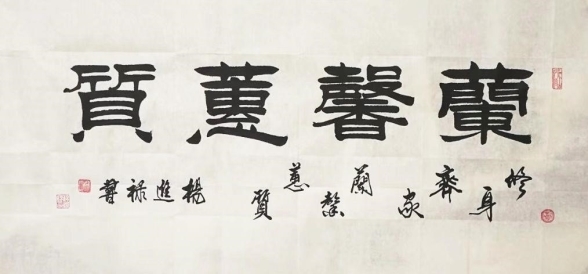 蘭馨蕙質
修身齊家蘭馨蕙質楊進祿書